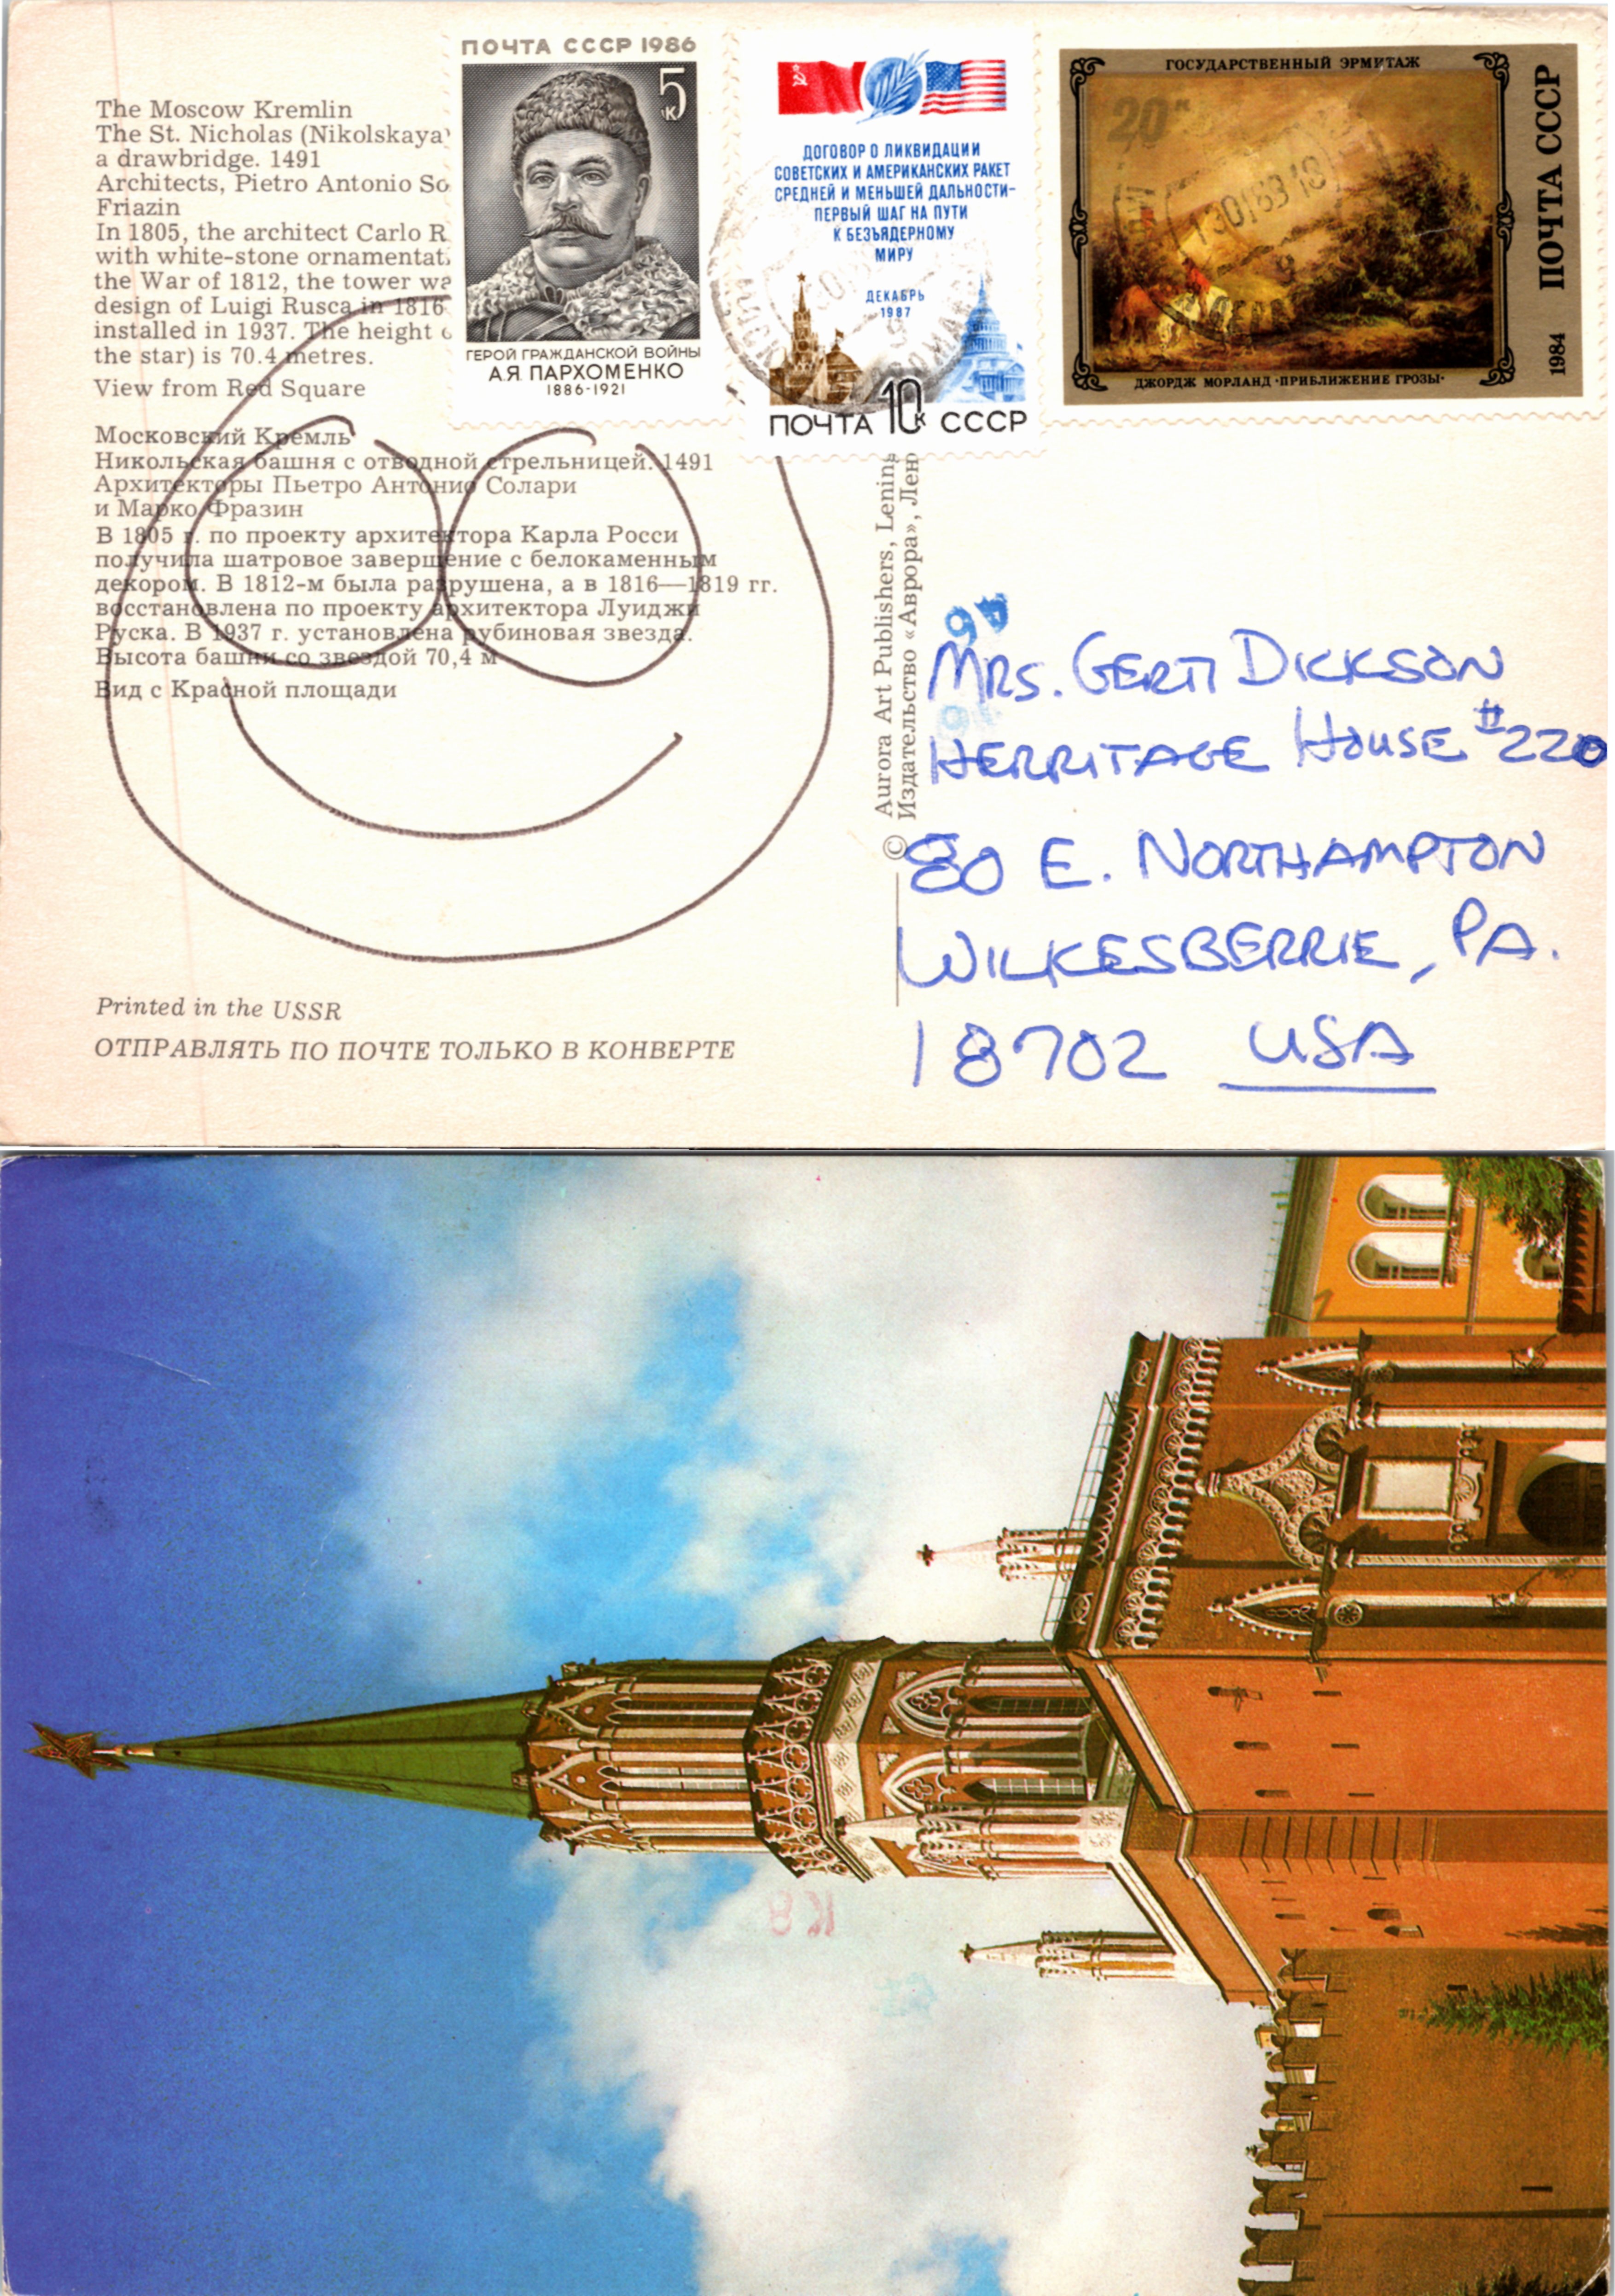 The Moscow Kremlin
The St. Nicholas (Nikolskaya)
a drawbridge. 1491
Architects, Pietro Antonio So
Friazin
In 1805, the architect Carlo R
with white-stone ornamentat
the War of 1812, the tower wa
design of Luigi Rusca in 1816
installed in 1937. The height
the star) is 70.4 metres.
View from Red Square
Московский Кремль
Никольская башня с отводной стрельницей. 1491
Архитекторы Пьетро Антонио Солари
и Марко Фразин
В 1805 г. по проекту архитектора Карла Росси
получила шатровое завершение с белокаменным
декором. В 1812-м была разрушена, а в 1816—1819 гг.
восстановлена по проекту архитектора Луиджи
Руска. В 1937 г. установлена рубиновая звезда.
Высота башни со звездой 70,4 м
Вид с Красной площади
Printed in the USSR
ОТПРАВЛЯТЬ ПО ПОЧТЕ ТОЛЬКО В КОНВЕРТЕ
ПОЧТА СССР 1986
5 к
ГЕРОЙ ГРАЖДАНСКОЙ ВОЙНЫ
А.Я. ПАРХОМЕНКО
1886-1921
ДОГОВОР О ЛИКВИДАЦИИ
СОВЕТСКИХ И АМЕРИКАНСКИХ РАКЕТ
СРЕДНЕЙ И МЕНЬШЕЙ ДАЛЬНОСТИ-
ПЕРВЫЙ ШАГ НА ПУТИ
К БЕЗЪЯДЕРНОМУ
МИРУ
ДЕКАБРЬ
1987
ПОЧТА 10к СССР
ГОСУДАРСТВЕННЫЙ ЭРМИТАЖ
20к
ДЖОРДЖ МОРЛАНД ·ПРИБЛИЖЕНИЕ ГРОЗЫ·
1984 ПОЧТА СССР
© Aurora Art Publishers, Lenin
Издательство «Аврора», Лен
MRS. GERTI DICKSON
HERRITAGE HOUSE #220
80 E. NORTHAMPTON
WILKESBERRIE, PA.
18702 USA
К8